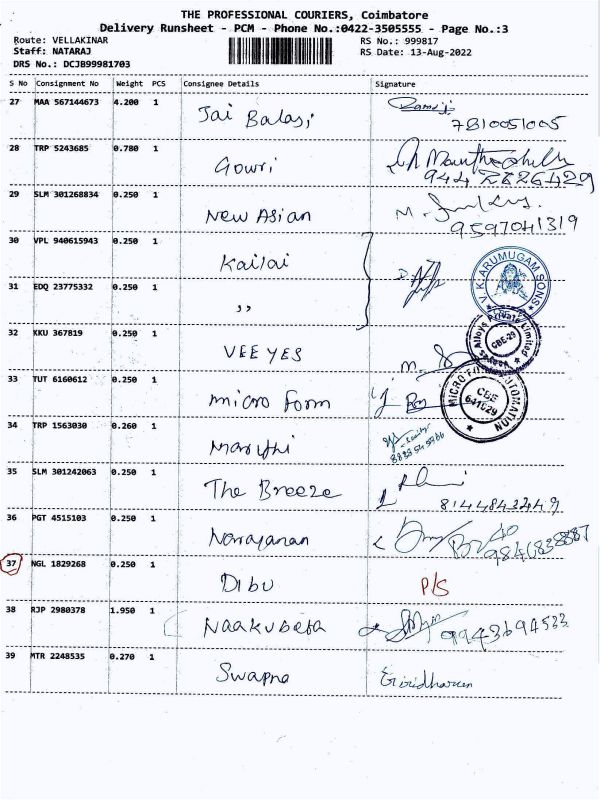 THE PROFESSIONAL COURIERS, Coimbatore
Delivery Runsheet - PCM - Phone No.:0422-3505555 - Page No.:3
Route: VELLAKINAR RS No.: 999817
Staff: NATARAJ RS Date: 13-Aug-2022
DRS No.: DCJB99981703
S No Consignment No Weight PCS Consignee Details Signature
27 MAA 567144673 4.200 1 Jai Balaji
7810051005
28 TRP 5243685 0.780 1 Gowri
944 2826429
29 SLM 301268834 0.250 1 New Asian M.
9597041319
30 VPL 940615943 0.250 1 Kailai
V.K. ARUMUGAM SONS
31 EDQ 23775332 0.250 1 ,,
Alloys Private Limited
CBE-29
32 KKU 367819 0.250 1 VEE YES M.
33 TUT 6160612 0.250 1 micro form
AUTOMATION
CBE
641029
34 TRP 1563030 0.260 1 Maruthi
35 SLM 301242063 0.250 1 The Breeze
8144843449
36 PGT 4515103 0.250 1 Narayanan
37 NGL 1829268 0.250 1 Dibu P/S
38 RJP 2980378 1.950 1 Naakubera 9943694533
39 MTR 2248535 0.270 1 Swapna Giridharan